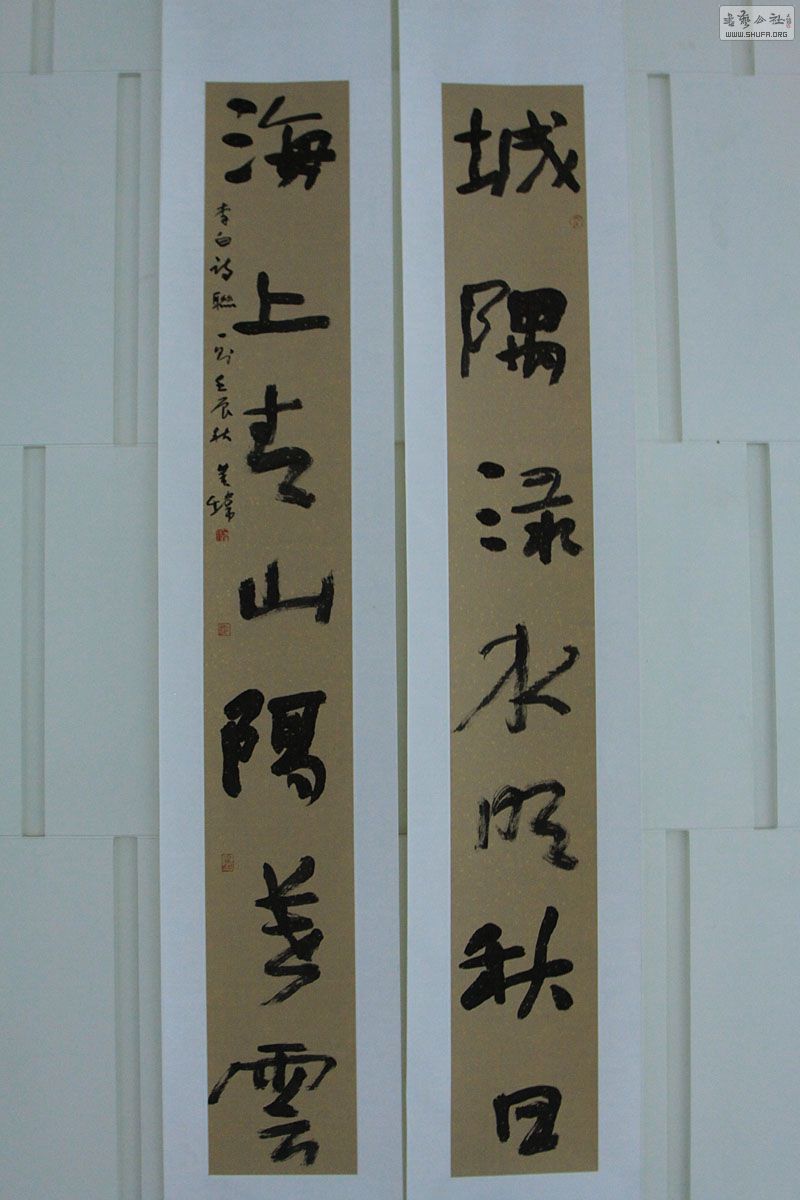 城隅渌水明秋日
海上青山隔暮云
李白诗联一则壬辰秋
書艺公社
WWW.SHUFA.ORG